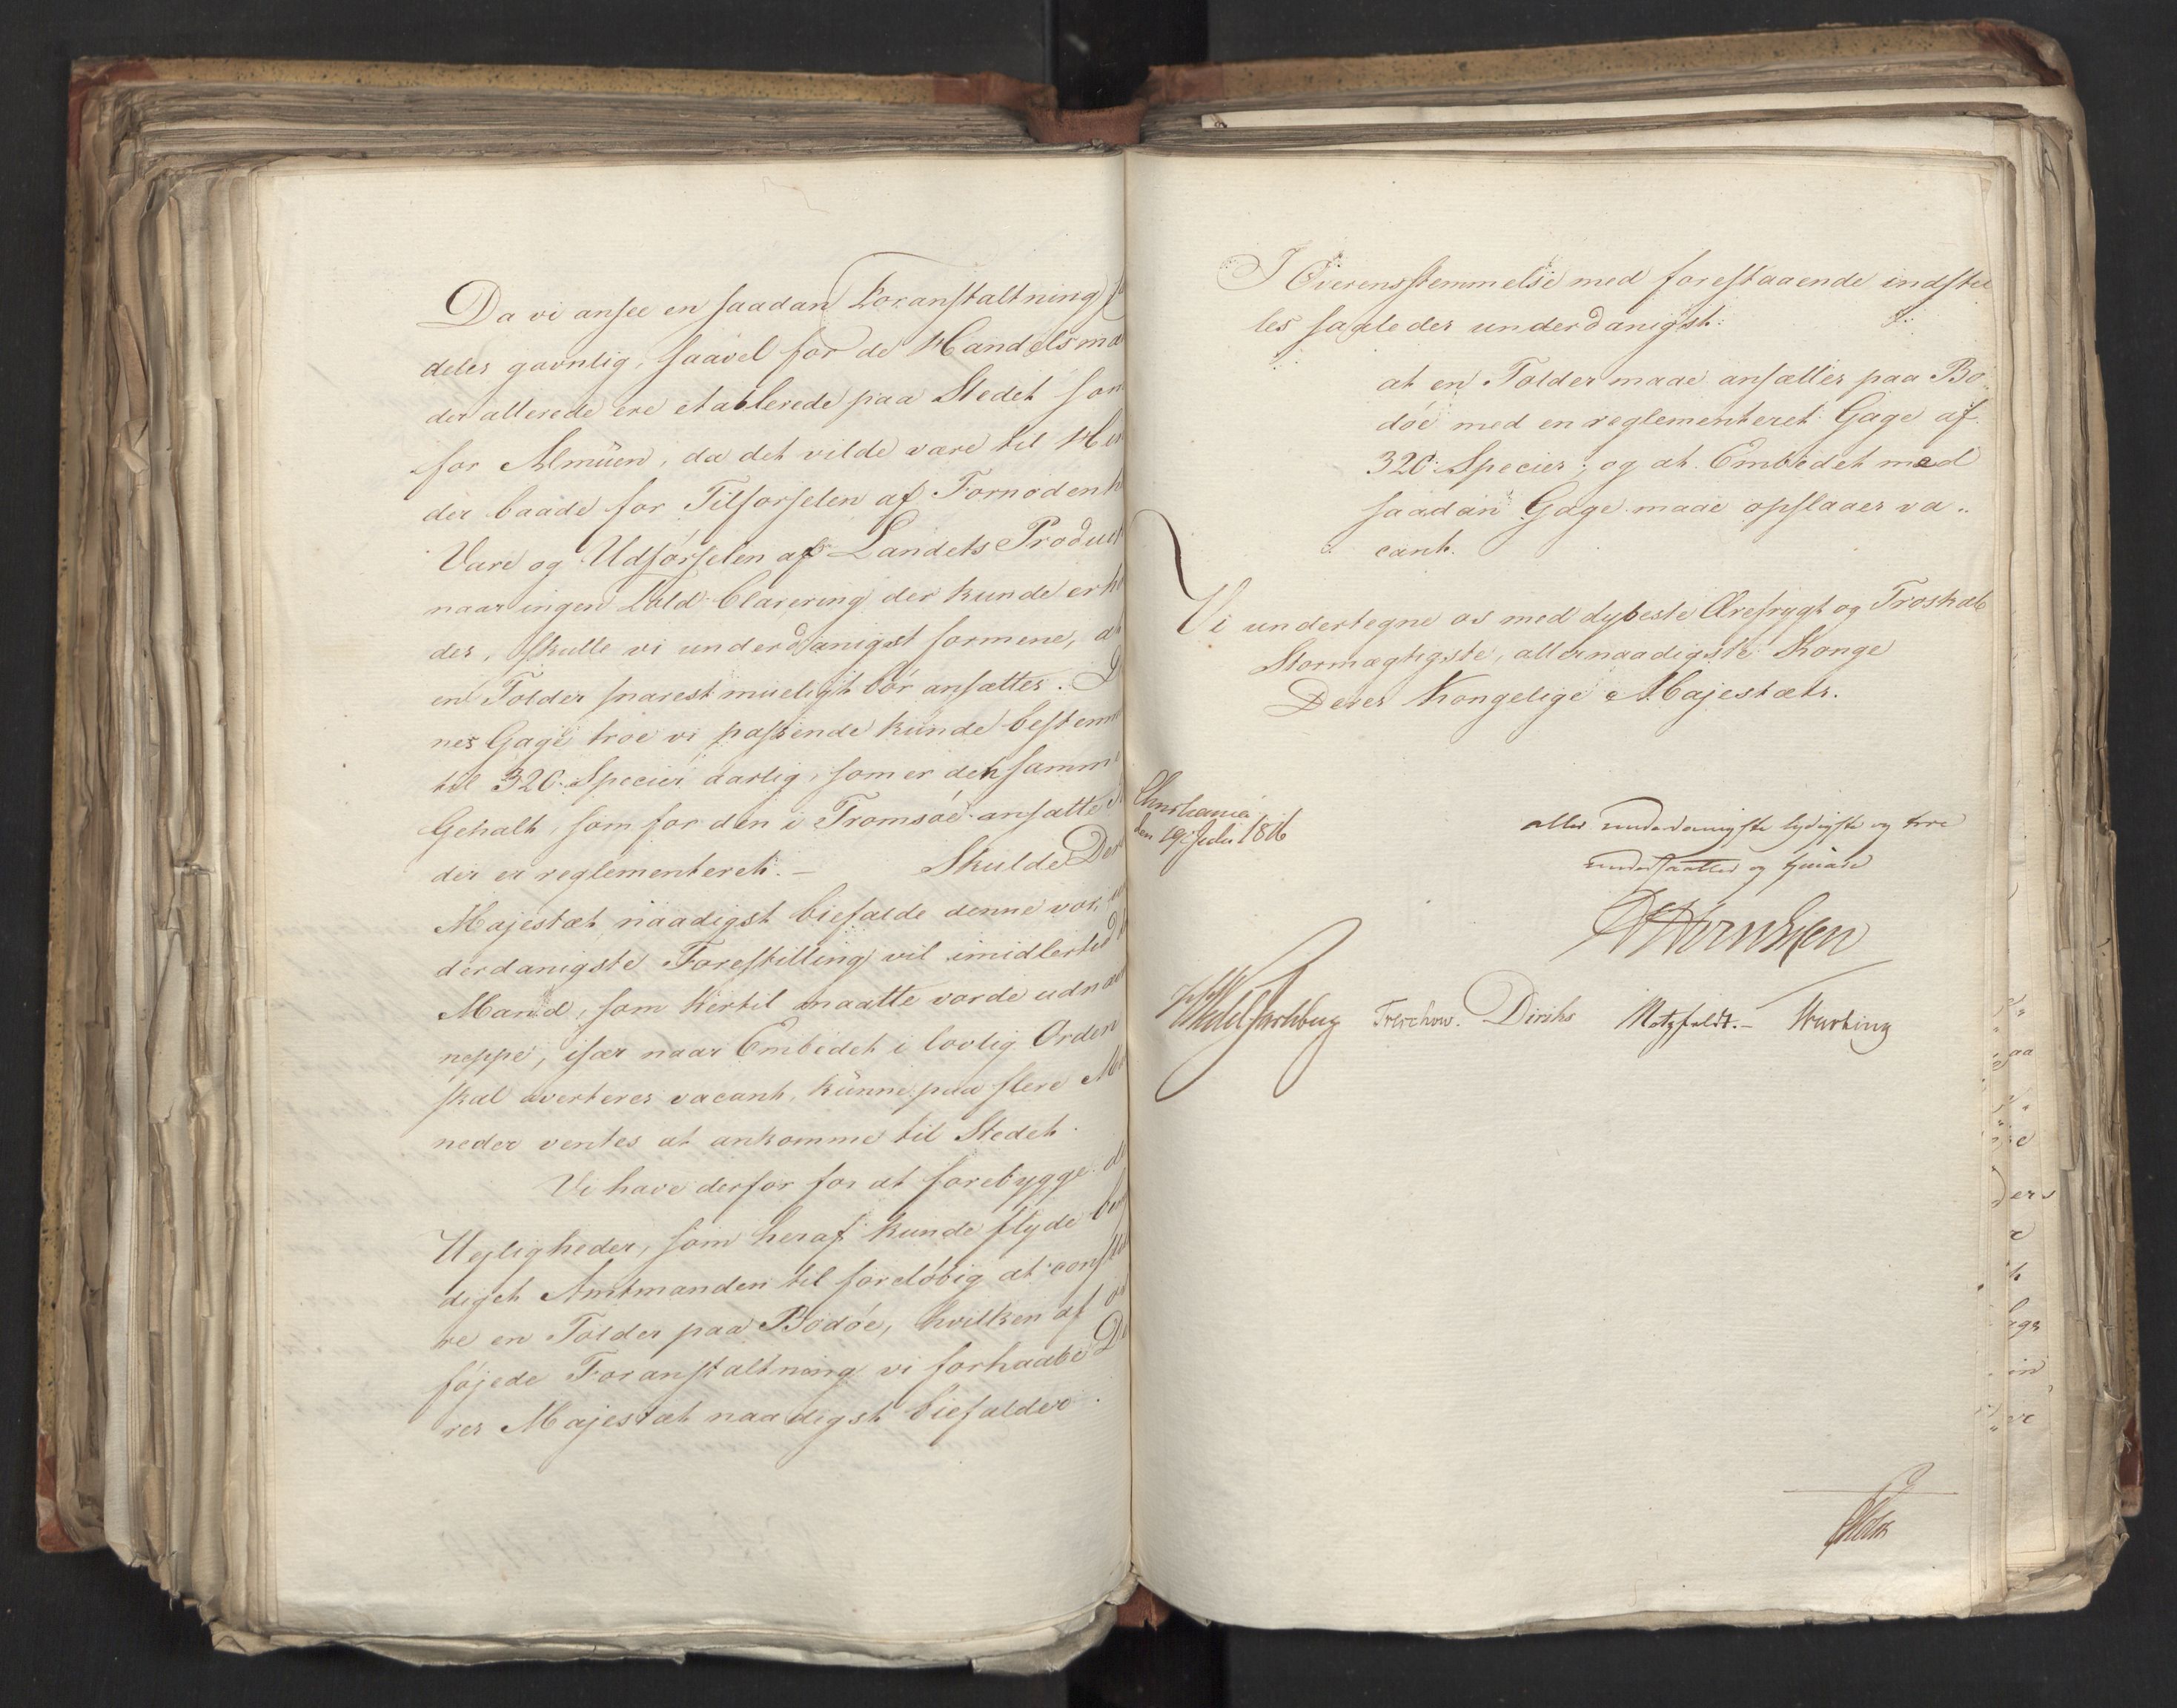 Da vi ansee en saadan Foranstaltning
deles gavnlig, saavel for de Handelsmæ
der allerede ere etablerede paa Stedet som
for Almuen, da det vilde være til Hin
der baade for Tilførselen af Fornødenh
Vare og Udførselen af Landets Product
naar ingen Told Clarering der kunde erho
des, skulle vi underdanigst formene, at
en Tolder snarest mueligt bør ansættes. De
nes Gage troe vi passende kunde bestemm
til 320 Species aarlig, som er den samme
Gehalt, som for den i Tromsøe ansatte
der er reglementeret. – Skulde Der
Majestæt naadigst biefalde denne vor, un
derdanigste Forestilling vil imidlertid
Mand, som hertil maatte vorde udnæv
neppe, især naar Embedet i lovlig Orden
skal averteres vacant, kunne paa flere Ma
neder ventes at ankomme til Stedet.
Vi have derfor for at forebygge de
Uejligheder, som heraf kunde flyde bem
diget Amtmanden til foreløbig at consti
re en Tolder paa Bodøe, hvilken af os
føjede Foranstaltning vi forhaabe De
res Majestæt naadigst biefalder.
I Overensstemmelse med forestaaende indstil
les saaledes underdanigst:
at en Tolder maae ansættes paa Bo
døe med en reglementeret Gage af
320 Species; og at Embedet med
saadan Gage maae opslaaes va..
cant.
Vi undertegne os med dybeste Ærefrygt og Troskab
Stormægtigste, allernaadigste Konge
Deres Kongelige Majestæts.
Christiania
den 19 Juli 1816
aller underdanigste lydigste og troe
undersaatter og tjenere
Wedel Jarlsberg Treschow. Diriks Motzfeldt. –